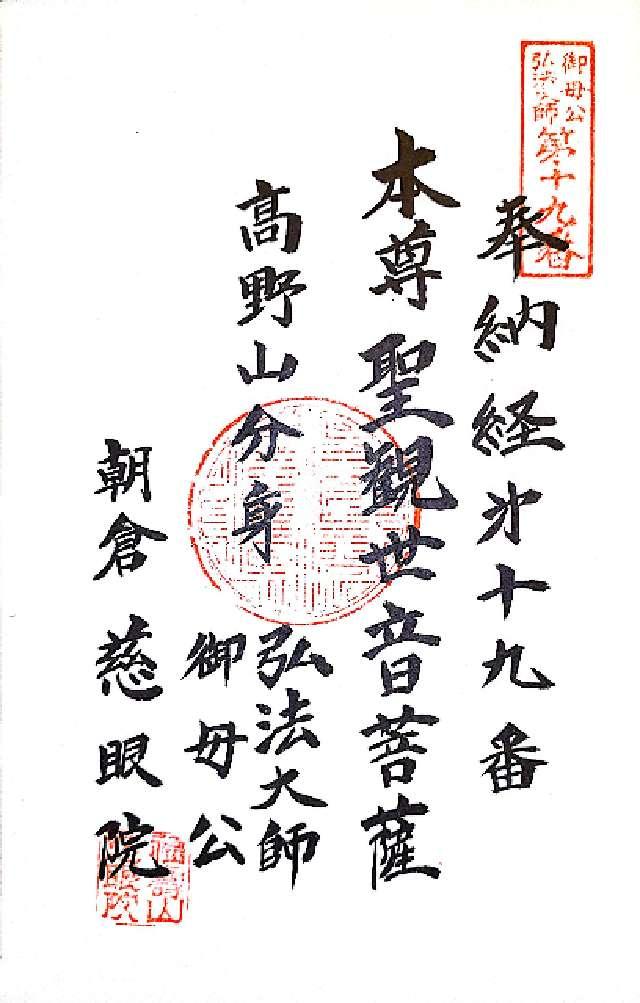 御母公
弘法大師
第十九番
奉納経第十九番
本尊聖観世音菩薩
高野山分身
弘法大師
御母公
朝倉慈眼院